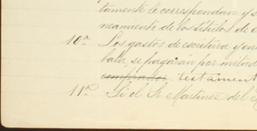 tamente le correspondan y s
namiento de los títulos de
10ª Los gastos de escritura y en
se pagaran por mitad
comprador, testament
11ª Si el Sr Martinez del